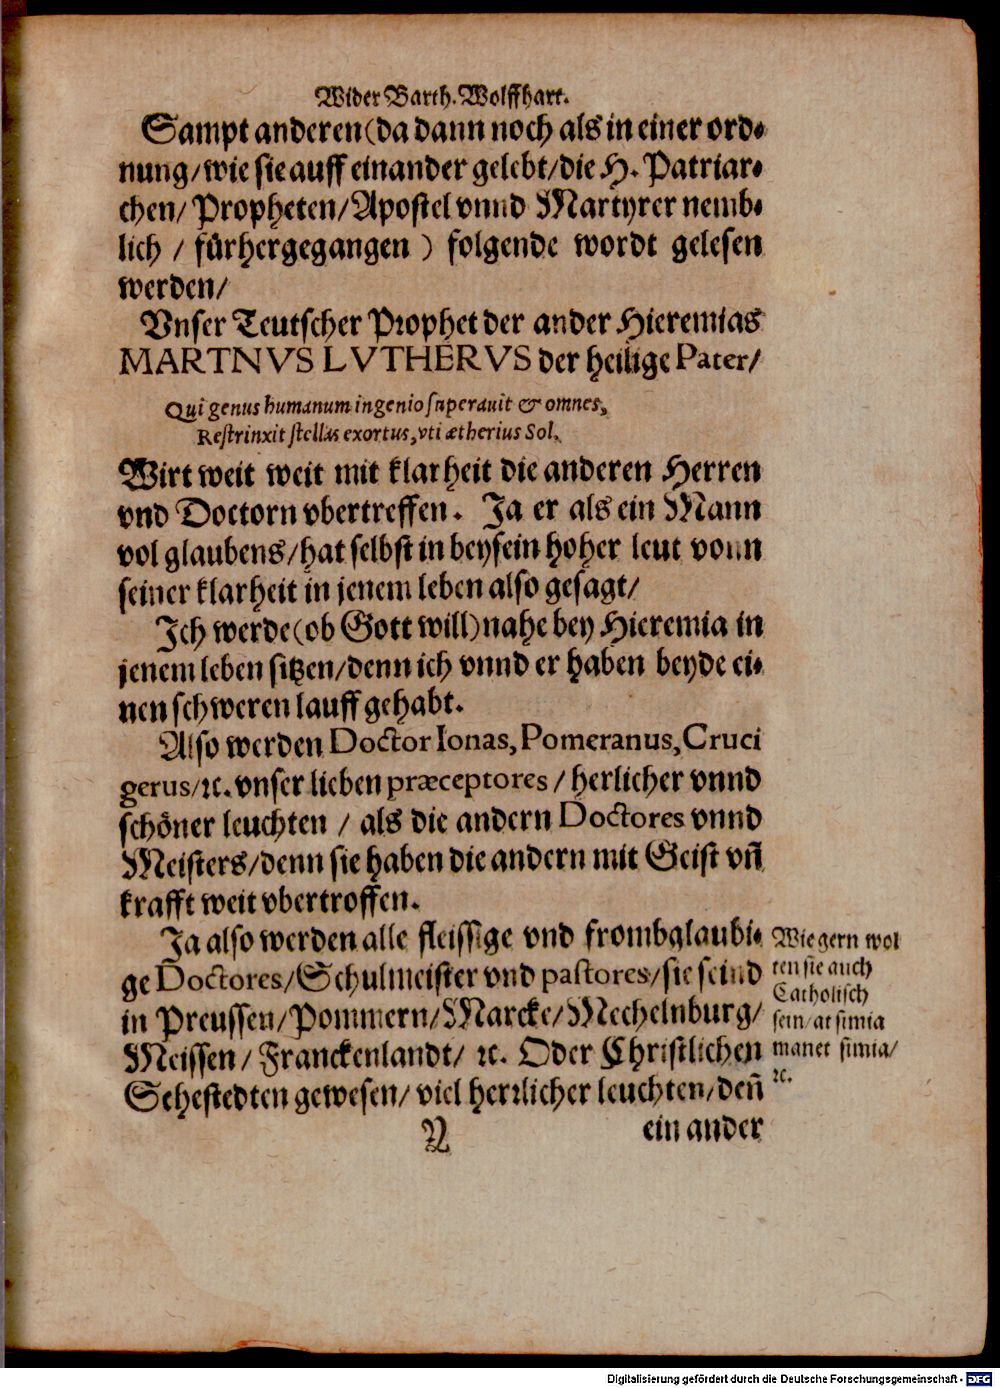 Wider Barth. Wolffhart.
Sampt anderen (da dann noch als in einer ord⸗
nung/ wie sie auff einander gelebt/ die H. Patriar⸗
chen/ Propheten/ Apostel vnnd Martyrer nemb⸗
lich / fürhergegangen ) folgende wordt gelesen
werden/
Vnser Teutscher Prophet der ander Hieremias
MARTNVS LVTHERVS der heilige Pater/
Qui genus humanum ingenio superauit & omnes,
Restrinxit stellas exortus, vti ætherius Sol.
Wirt weit weit mit klarheit die anderen Herren
vnd Doctorn vbertreffen. Ja er als ein Mann
vol glaubens/ hat selbst in beysein hoher leut vonn
seiner klarheit in jenem leben also gesagt/
Ich werde (ob Gott will) nahe bey Hieremia in
jenem leben sitzen/ denn ich vnnd er haben beyde ei⸗
nen schweren lauff gehabt.
Also werden Doctor Ionas, Pomeranus, Cruci
gerus/ ꝛc. vnser lieben præceptores / herlicher vnnd
schöner leuchten / als die andern Doctores vnnd
Meisters/ denn sie haben die andern mit Geist vñ
krafft weit vbertroffen.
Ja also werden alle fleissige vnd frombglaubi⸗
ge Doctores/ Schulmeister vnd pastores/ sie seind
in Preussen/ Pommern/ Marcke/ Mechelnburg/
Meissen / Franckenlandt/ ꝛc. Oder Christlichen
Sehestedten gewesen/ viel herrlicher leuchten/ deñ
Wie gern wol
ten sie auch
Catholisch
sein/ at simia
manet simia/
ꝛc.
N ein ander
Digitalisierung gefördert durch die Deutsche Forschungsgemeinschaft - DFG